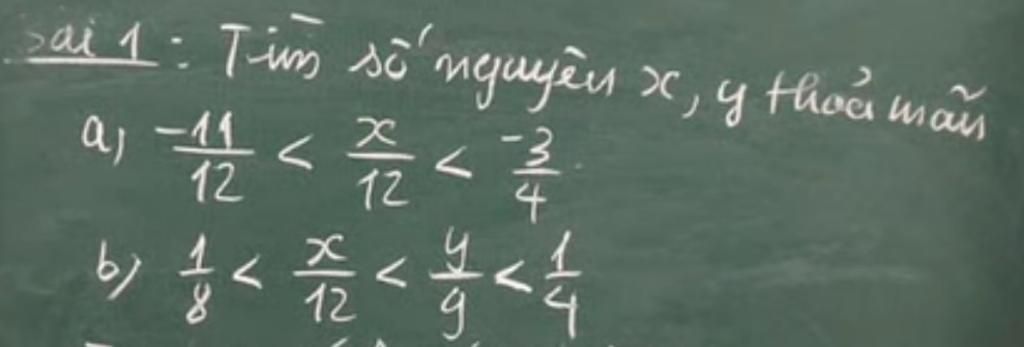 Bài 1: Tìm số nguyên x, y thoả mãn
a, -11/12 < x/12 < -3/4
b) 1/8 < x/12 < y/9 < 1/4